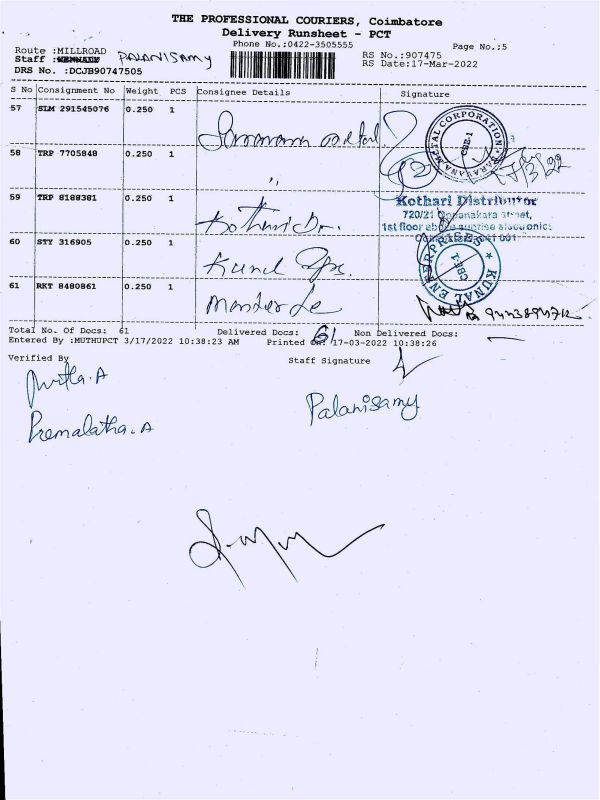 THE PROFESSIONAL COURIERS, Coimbatore
Delivery Runsheet - PCT
Phone No.:0422-3505555
Page No.:5
Route :MILLROAD
RS No.:907475
Staff : PALANISAMY
RS Date:17-Mar-2022
DRS No. :DCJB90747505
S No Consignment No Weight PCS Consignee Details Signature
57 SLM 291545076 0.250 1
METAL CORPORATION * SARAVANA
CBE-1
58 TRP 7705848 0.250 1 "
17/3/22
59 TRP 8188381 0.250 1 Kothari Dr.
Kothari Distributor
720/21 Oppanakara street,
1st floor above sunrise electronics
60 STY 316905 0.250 1 Kunal
KUNAL ENTERPRISES *
CBE-1
61 RKT 8480861 0.250 1
Total No. Of Docs: 61 Delivered Docs: 61 Non Delivered Docs:
Entered By :MUTHUPCT 3/17/2022 10:38:23 AM Printed On: 17-03-2022 10:38:26
Verified By Staff Signature
Palanisamy
Premalatha.A